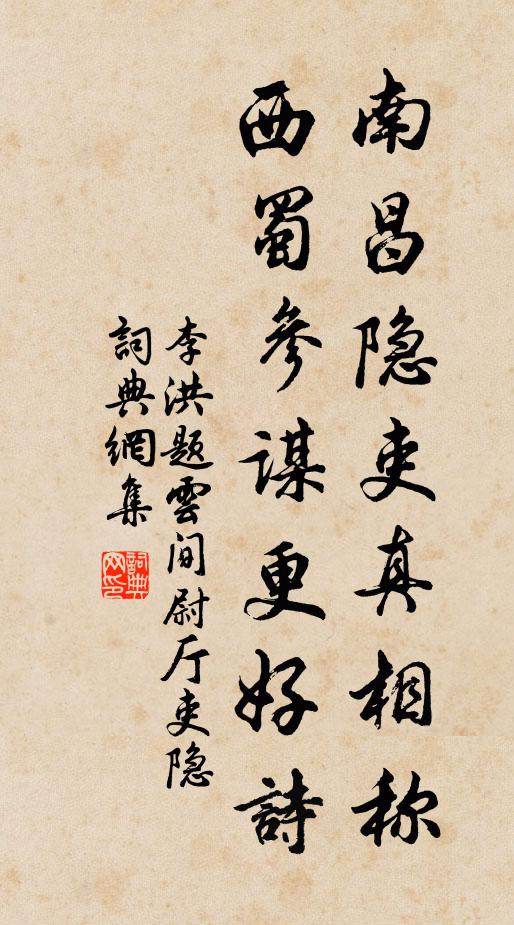 南昌隐吏真相称
西蜀參谋更好詩
李洪题雲间尉厅吏隐
詞典網集
詞典
网印